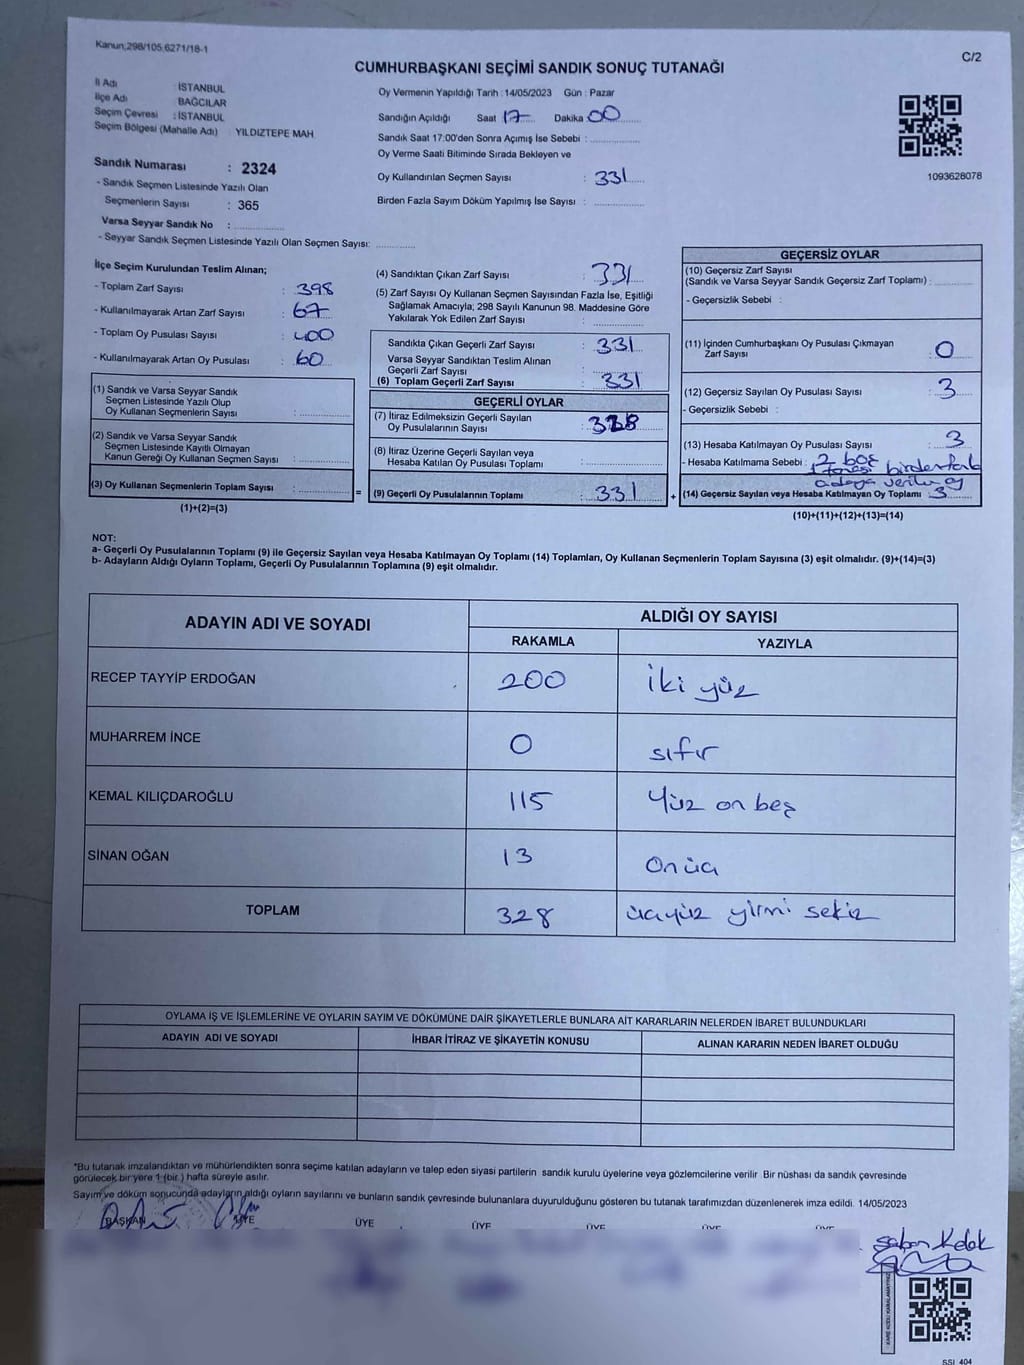 Kanun;298/105,6271/18-1
C/2
CUMHURBAŞKANI SEÇİMİ SANDIK SONUÇ TUTANAĞI
İl Adı : İSTANBUL
İlçe Adı : BAĞCILAR
Seçim Çevresi : İSTANBUL
Seçim Bölgesi (Mahalle Adı) : YILDIZTEPE MAH
Oy Vermenin Yapıldığı Tarih : 14/05/2023 Gün : Pazar
Sandığın Açıldığı Saat 17 Dakika 00
Sandık Saat 17:00'den Sonra Açımış İse Sebebi :
Oy Verme Saati Bitiminde Sırada Bekleyen ve
Oy Kullandırılan Seçmen Sayısı : 331
Birden Fazla Sayım Döküm Yapılmış İse Sayısı :
1093628078
Sandık Numarası : 2324
- Sandık Seçmen Listesinde Yazılı Olan
Seçmenlerin Sayısı : 365
Varsa Seyyar Sandık No :
- Seyyar Sandık Seçmen Listesinde Yazılı Olan Seçmen Sayısı:
İlçe Seçim Kurulundan Teslim Alınan;
- Toplam Zarf Sayısı : 398
- Kullanılmayarak Artan Zarf Sayısı : 67
- Toplam Oy Pusulası Sayısı : 400
- Kullanılmayarak Artan Oy Pusulası : 60
(1) Sandık ve Varsa Seyyar Sandık
Seçmen Listesinde Yazılı Olup
Oy Kullanan Seçmenlerin Sayısı :
(2) Sandık ve Varsa Seyyar Sandık
Seçmen Listesinde Kayıtlı Olmayan
Kanun Gereği Oy Kullanan Seçmen Sayısı :
(3) Oy Kullanan Seçmenlerin Toplam Sayısı :
(1)+(2)=(3)
=
(4) Sandıktan Çıkan Zarf Sayısı : 331
(5) Zarf Sayısı Oy Kullanan Seçmen Sayısından Fazla İse, Eşitliği
Sağlamak Amacıyla; 298 Sayılı Kanunun 98. Maddesine Göre
Yakılarak Yok Edilen Zarf Sayısı :
Sandıkta Çıkan Geçerli Zarf Sayısı : 331
Varsa Seyyar Sandıktan Teslim Alınan
Geçerli Zarf Sayısı :
(6) Toplam Geçerli Zarf Sayısı : 331
GEÇERLİ OYLAR
(7) İtiraz Edilmeksizin Geçerli Sayılan
Oy Pusulalarının Sayısı : 328
(8) İtiraz Üzerine Geçerli Sayılan veya
Hesaba Katılan Oy Pusulası Toplamı :
(9) Geçerli Oy Pusulalarının Toplamı : 331
+
GEÇERSİZ OYLAR
(10) Geçersiz Zarf Sayısı
(Sandık ve Varsa Seyyar Sandık Geçersiz Zarf Toplamı) :
- Geçersizlik Sebebi :
(11) İçinden Cumhurbaşkanı Oy Pusulası Çıkmayan
Zarf Sayısı : 0
(12) Geçersiz Sayılan Oy Pusulası Sayısı : 3
- Geçersizlik Sebebi :
(13) Hesaba Katılmayan Oy Pusulası Sayısı : 3
- Hesaba Katılmama Sebebi : 2 boş
1 tanesi birden fazla
adaya verilen oy
(14) Geçersiz Sayılan veya Hesaba Katılmayan Oy Toplamı : 3
(10)+(11)+(12)+(13)=(14)
NOT:
a- Geçerli Oy Pusulalarının Toplamı (9) ile Geçersiz Sayılan veya Hesaba Katılmayan Oy Toplamı (14) Toplamları, Oy Kullanan Seçmenlerin Toplam Sayısına (3) eşit olmalıdır. (9)+(14)=(3)
b- Adayların Aldığı Oyların Toplamı, Geçerli Oy Pusulalarının Toplamına (9) eşit olmalıdır.
ADAYIN ADI VE SOYADI
ALDIĞI OY SAYISI
RAKAMLA YAZIYLA
RECEP TAYYİP ERDOĞAN 200 iki yüz
MUHARREM İNCE 0 sıfır
KEMAL KILIÇDAROĞLU 115 Yüz on beş
SİNAN OĞAN 13 Onüç
TOPLAM 328 üçyüz yirmi sekiz
OYLAMA İŞ VE İŞLEMLERİNE VE OYLARIN SAYIM VE DÖKÜMÜNE DAİR ŞİKAYETLERLE BUNLARA AİT KARARLARIN NELERDEN İBARET BULUNDUKLARI
ADAYIN ADI VE SOYADI İHBAR İTİRAZ VE ŞİKAYETİN KONUSU ALINAN KARARIN NEDEN İBARET OLDUĞU
*Bu tutanak imzalandıktan ve mühürlendikten sonra seçime katılan adayların ve talep eden siyasi partilerin sandık kurulu üyelerine veya gözlemcilerine verilir Bir nüshası da sandık çevresinde
görülecek bir yere 1 (bir) hafta süreyle asılır.
Sayım ve döküm sonucunda adayların aldığı oyların sayılarını ve bunların sandık çevresinde bulunanlara duyurulduğunu gösteren bu tutanak tarafımızdan düzenlenerek imza edildi. 14/05/2023
BAŞKAN ÜYE ÜYE ÜYE ÜYE ÜYE ÜYE
SSI 404